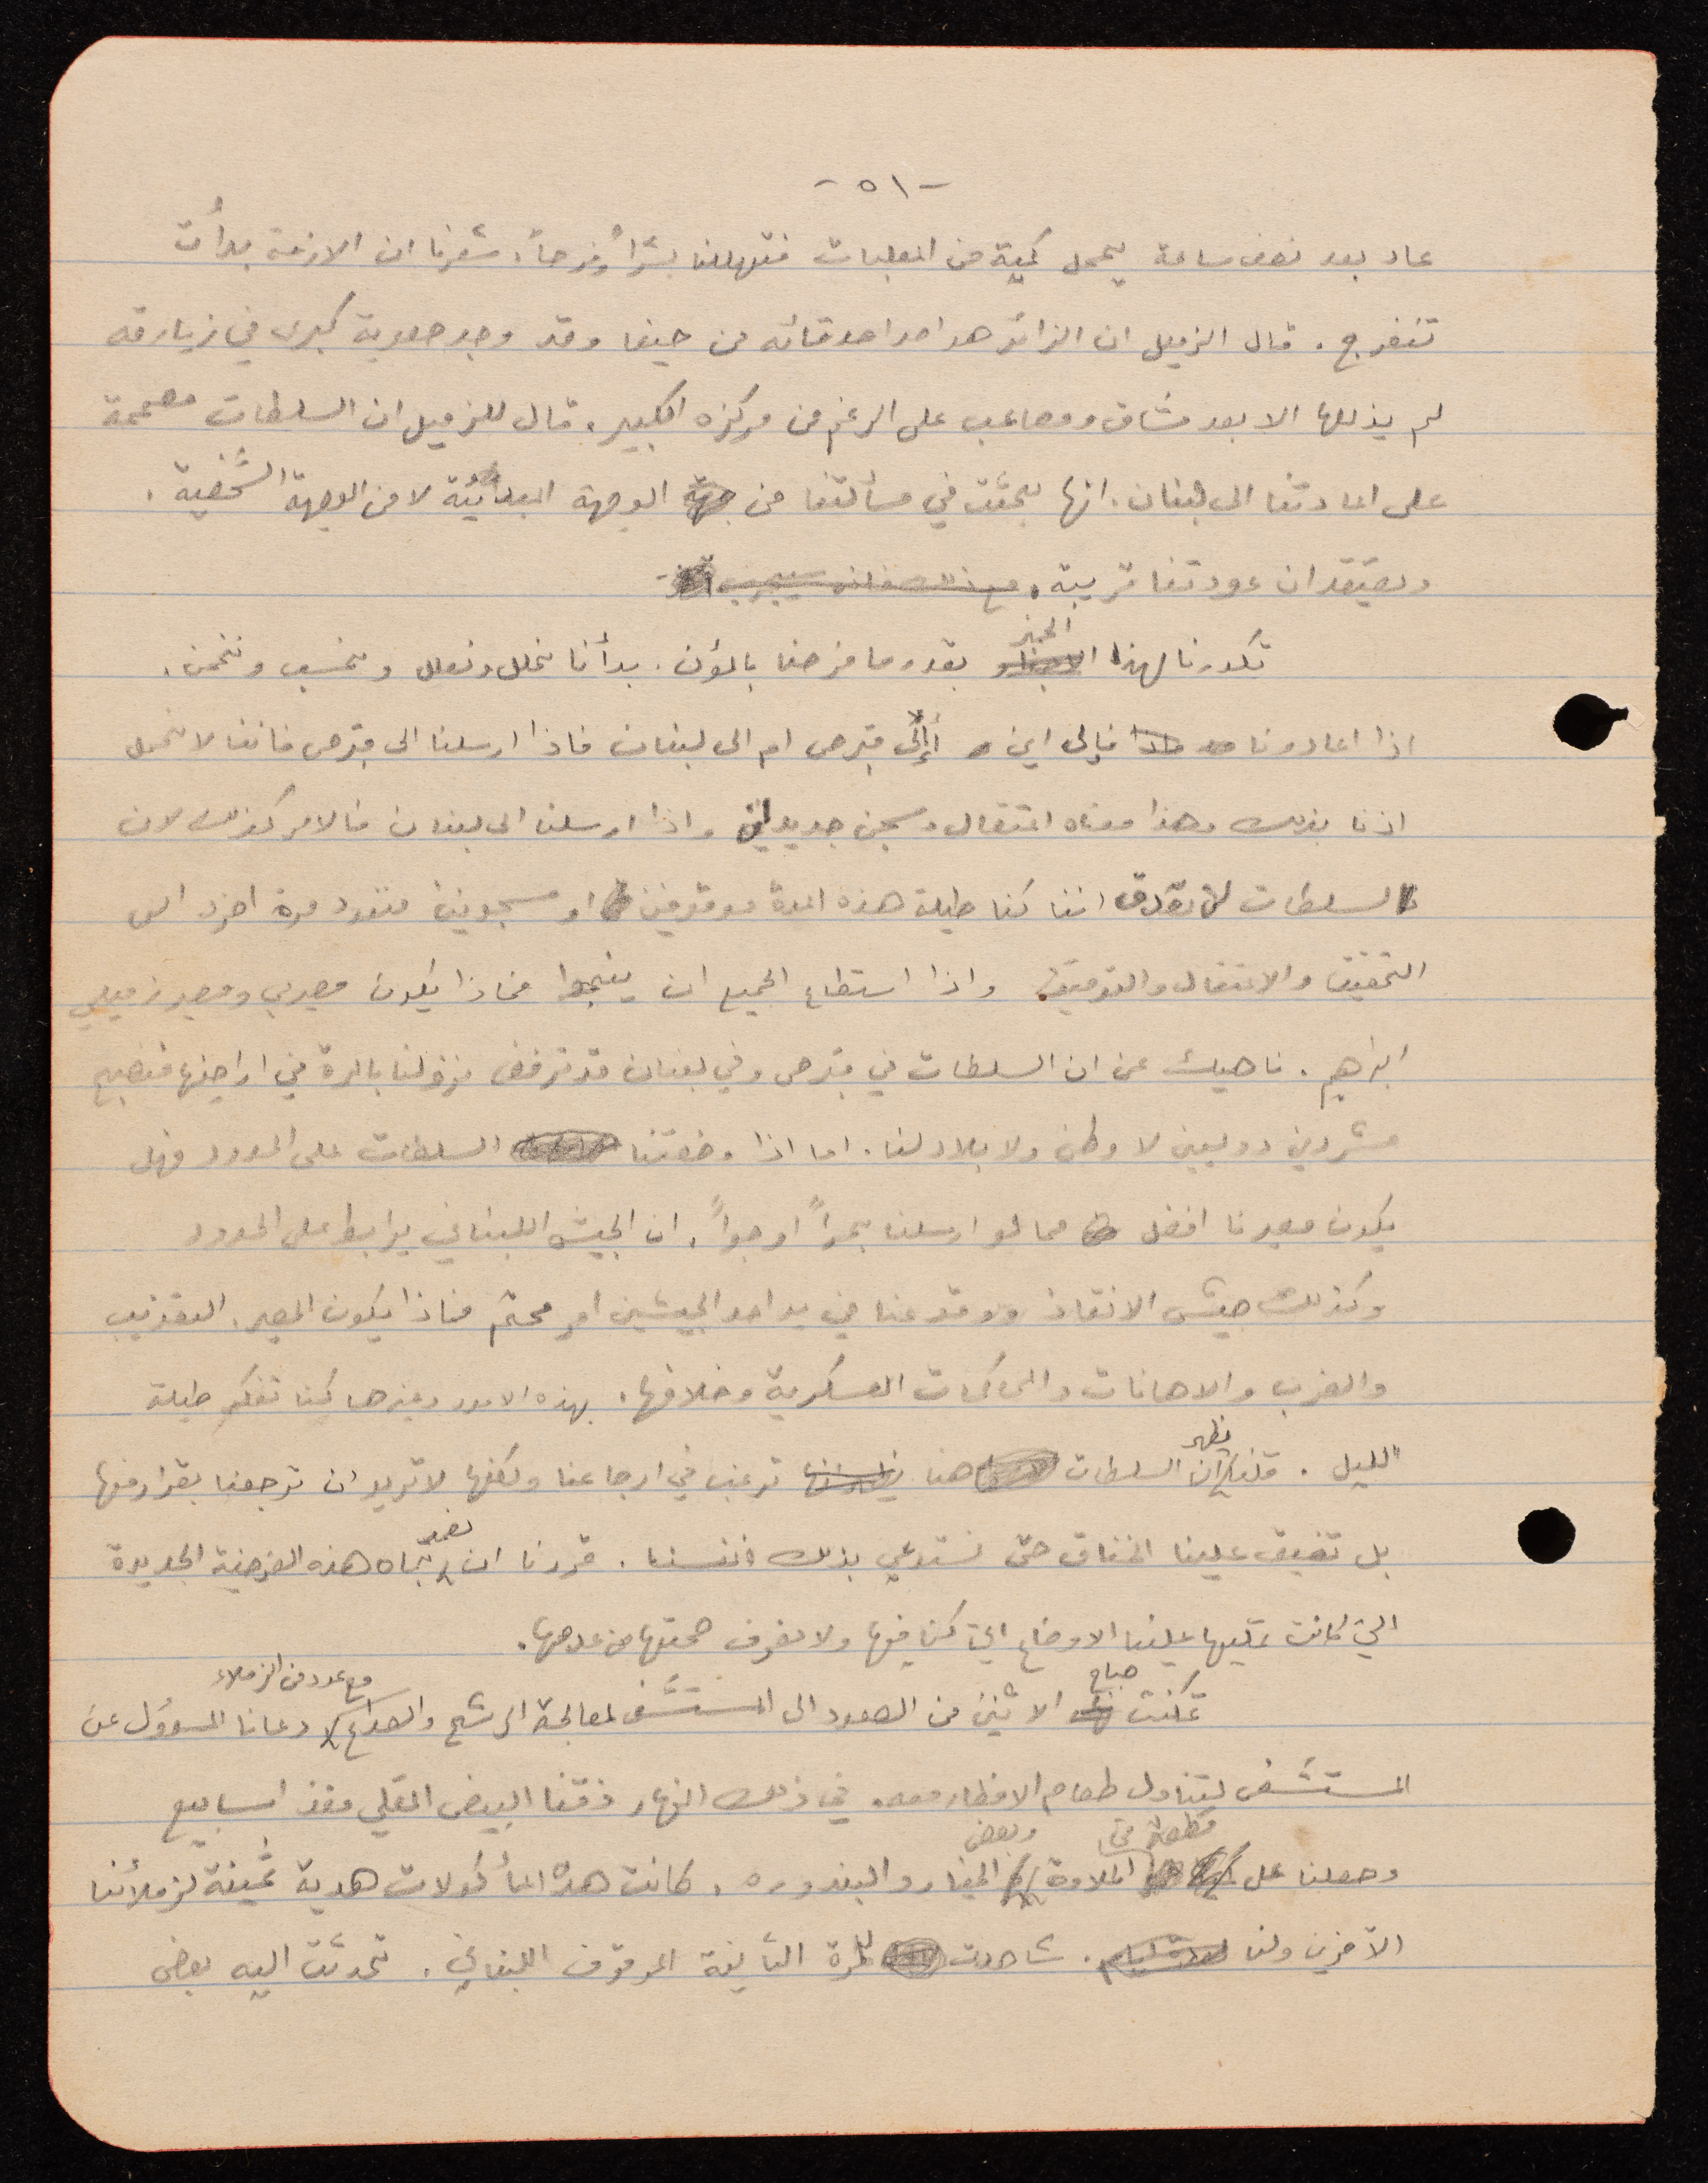 -٥١-
عاد بعد نصف ساعة يحمل كمية من المعلبات فتهللنا بشراً وفرحاً. شعرنا ان الازمة بدأت
تنفرج. قال الزميل ان الزائر هو احد اصدقائه من حيفا وقد وجد صعوبة كبرى في زيارته
لم يذللها الا بعد مشاق ومصاعب على الرغم من مركزه الكبير. قال للزميل ان السلطات مصممة
على اعادتنا الى لبنان. انها بحثت في مسألتنا من جهة الوجهة المبدأية لا من الوجهة الشخصية.
ويعتقد ان عودتنا قريبة. مع ذلك فانه سيجرب
تكدرنا لهذا الخبر بقدر ما فرحنا بالمؤن. بدأنا نحلل ونعلل ونحسب ونخمن.
اذا اعادونا فإلى اين أإلى قبرص ام الى لبنان فاذا ارسلنا الى قبرص فاننا لا نحمل
اذنا بذلك وهذا معناه اعتقال وسجن جديدان واذا ارسلنا الى لبنان فالامر كذلك لان
السلطات لا تصدق اننا كنا طيلة هذه المدة موقوفين او مسجونين فنعود مرة اخرى الى
التحقيق والاعتقال والتوقيف. واذا استطاع الجميع ان ينجوا فماذا يكون مصيري ومصير زميلي
ابراهيم. ناهيك عن ان السلطات في قبرص وفي لبنان قد ترفض نزولنا بالمرة في اراضيها فنصبح
مشردين دوليين لا وطن ولا بلاد لنا. اما اذا وضعتنا السلطات على الحدود فهل
يكون مصيرنا افضل مما لو ارسلنا بحراً او جواً. ان الجيش اللبناني يرابط على الحدود
وكذلك جيش الانقاذ ووقوعنا في يد احد الجيشين امر محتم فماذا يكون المصير. التعذيب
والضرب والاهانات والمحاكمات العسكرية وخلافها. بهذه الامور وغيرها كنا نفكر طيلة
الليل. قلنا يظهر ان السلطات هنا ترغب في ارجاعنا ولكنها لا تريد ان ترجعنا بقرار منها
بل تضيق علينا الخناق حتى نستدعي بذلك انفسنا. قررنا ان نصمد تجاه هذه الفرضية الجديدة
التي كانت تمليها علينا الاوضاع التي كنا فيها ولا نعرف صحتها من عدمها.
تمكنت صباح الاثنين من الصعود الى المستشفى لمعالجة الرشح والصداع مع عدد من الزملاء دعانا المسؤول عن
المستشفى لتناول طعام الافطار معه. في ذلك النهار ذقنا البيض المقلي منذ اسابيع
وحصلنا على قطعة من الحلاوة وبعض الخيار والبندوره. كانت هذه المأكولات هدية ثمينة لزملائنا
الآخرين ولنا. شاهدت للمرة الثانية الموقوف اللبناني. تحدثت اليه بعض